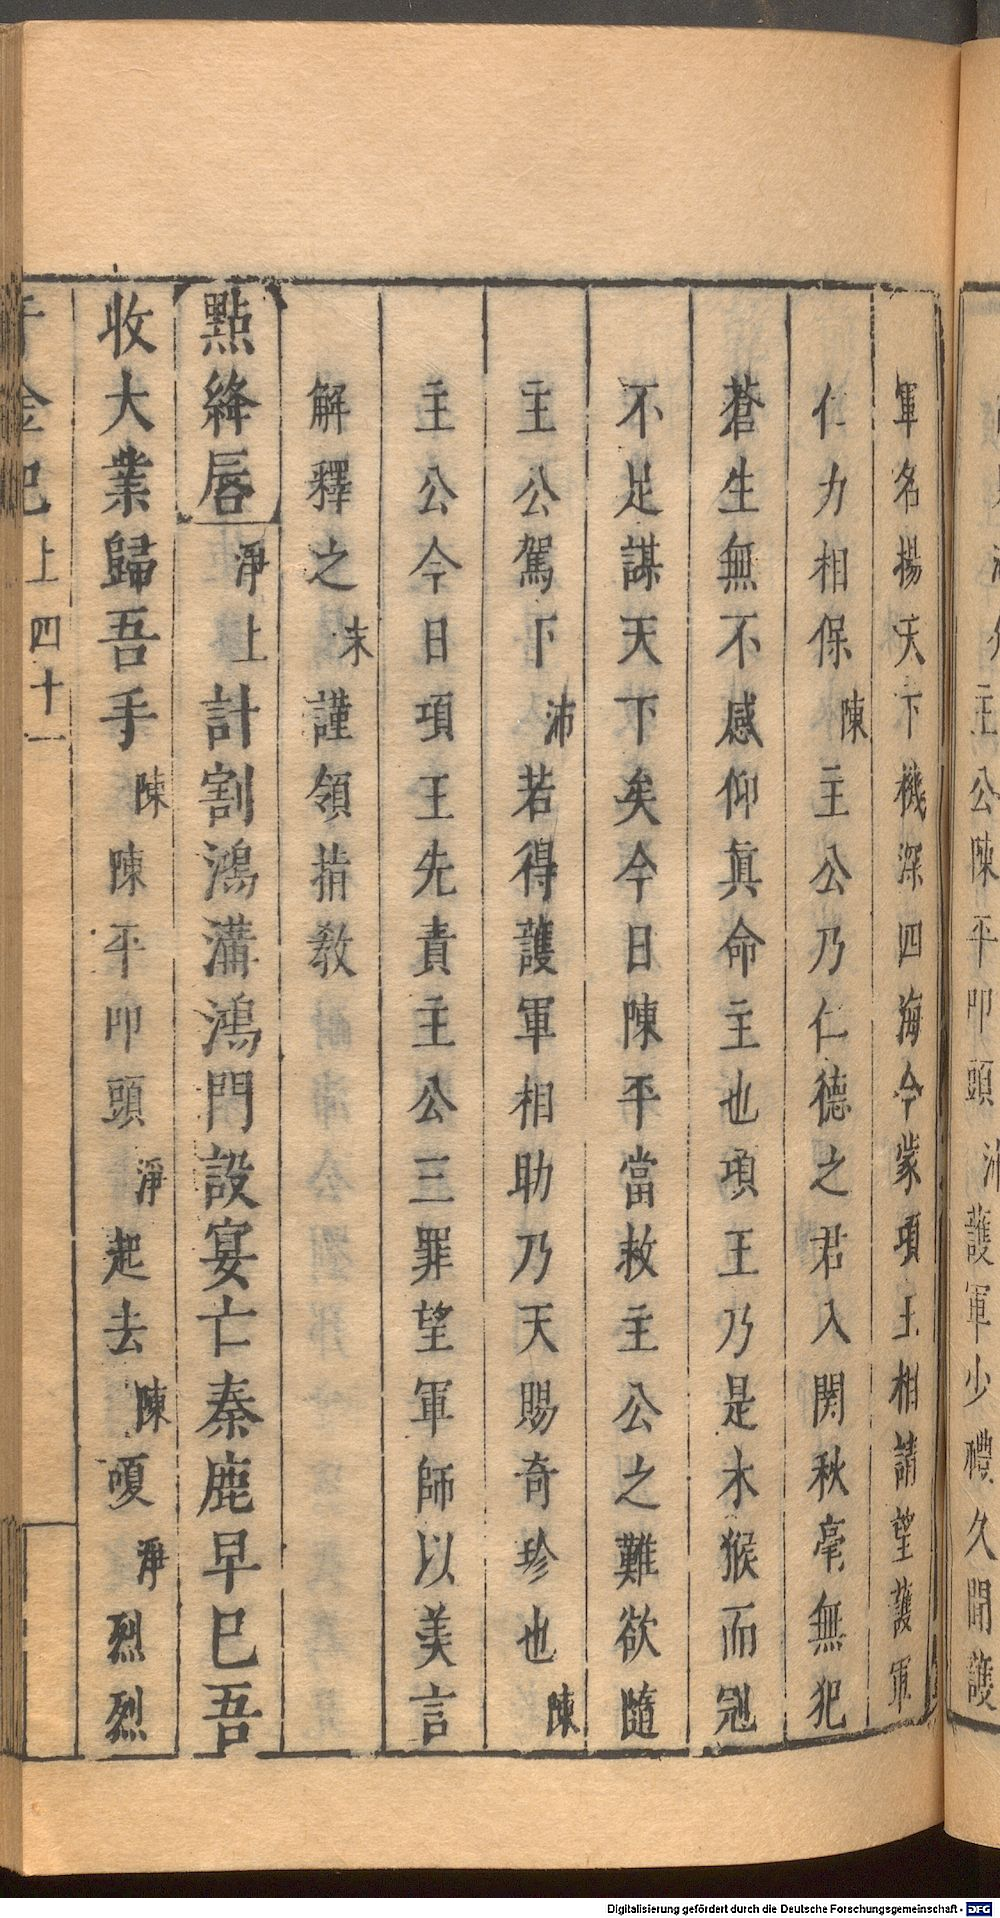 主公陳平叩頭沛護軍少禮久聞護
軍名揚天下機深四海今蒙項王相請望護軍
仁力相保陳主公乃仁德之君入関秋毫無犯
蒼生無不感仰眞命主也項王乃是木猴而冠
不足謀天下矣今日陳平當救主公之難欲隨
主公駕下沛若得護軍相助乃天賜奇珍也陳
主公今日項王先責主公三罪望軍師以美言
解釋之末謹領指教
點絳唇淨上計割鴻溝鴻門設宴亡秦鹿早巳吾
收大業歸吾手陳陳平叩頭淨起去陳嗄淨烈烈
千金記上四十一
Digitalisierung gefördert durch die Deutsche Forschungsgemeinschaft - DFG